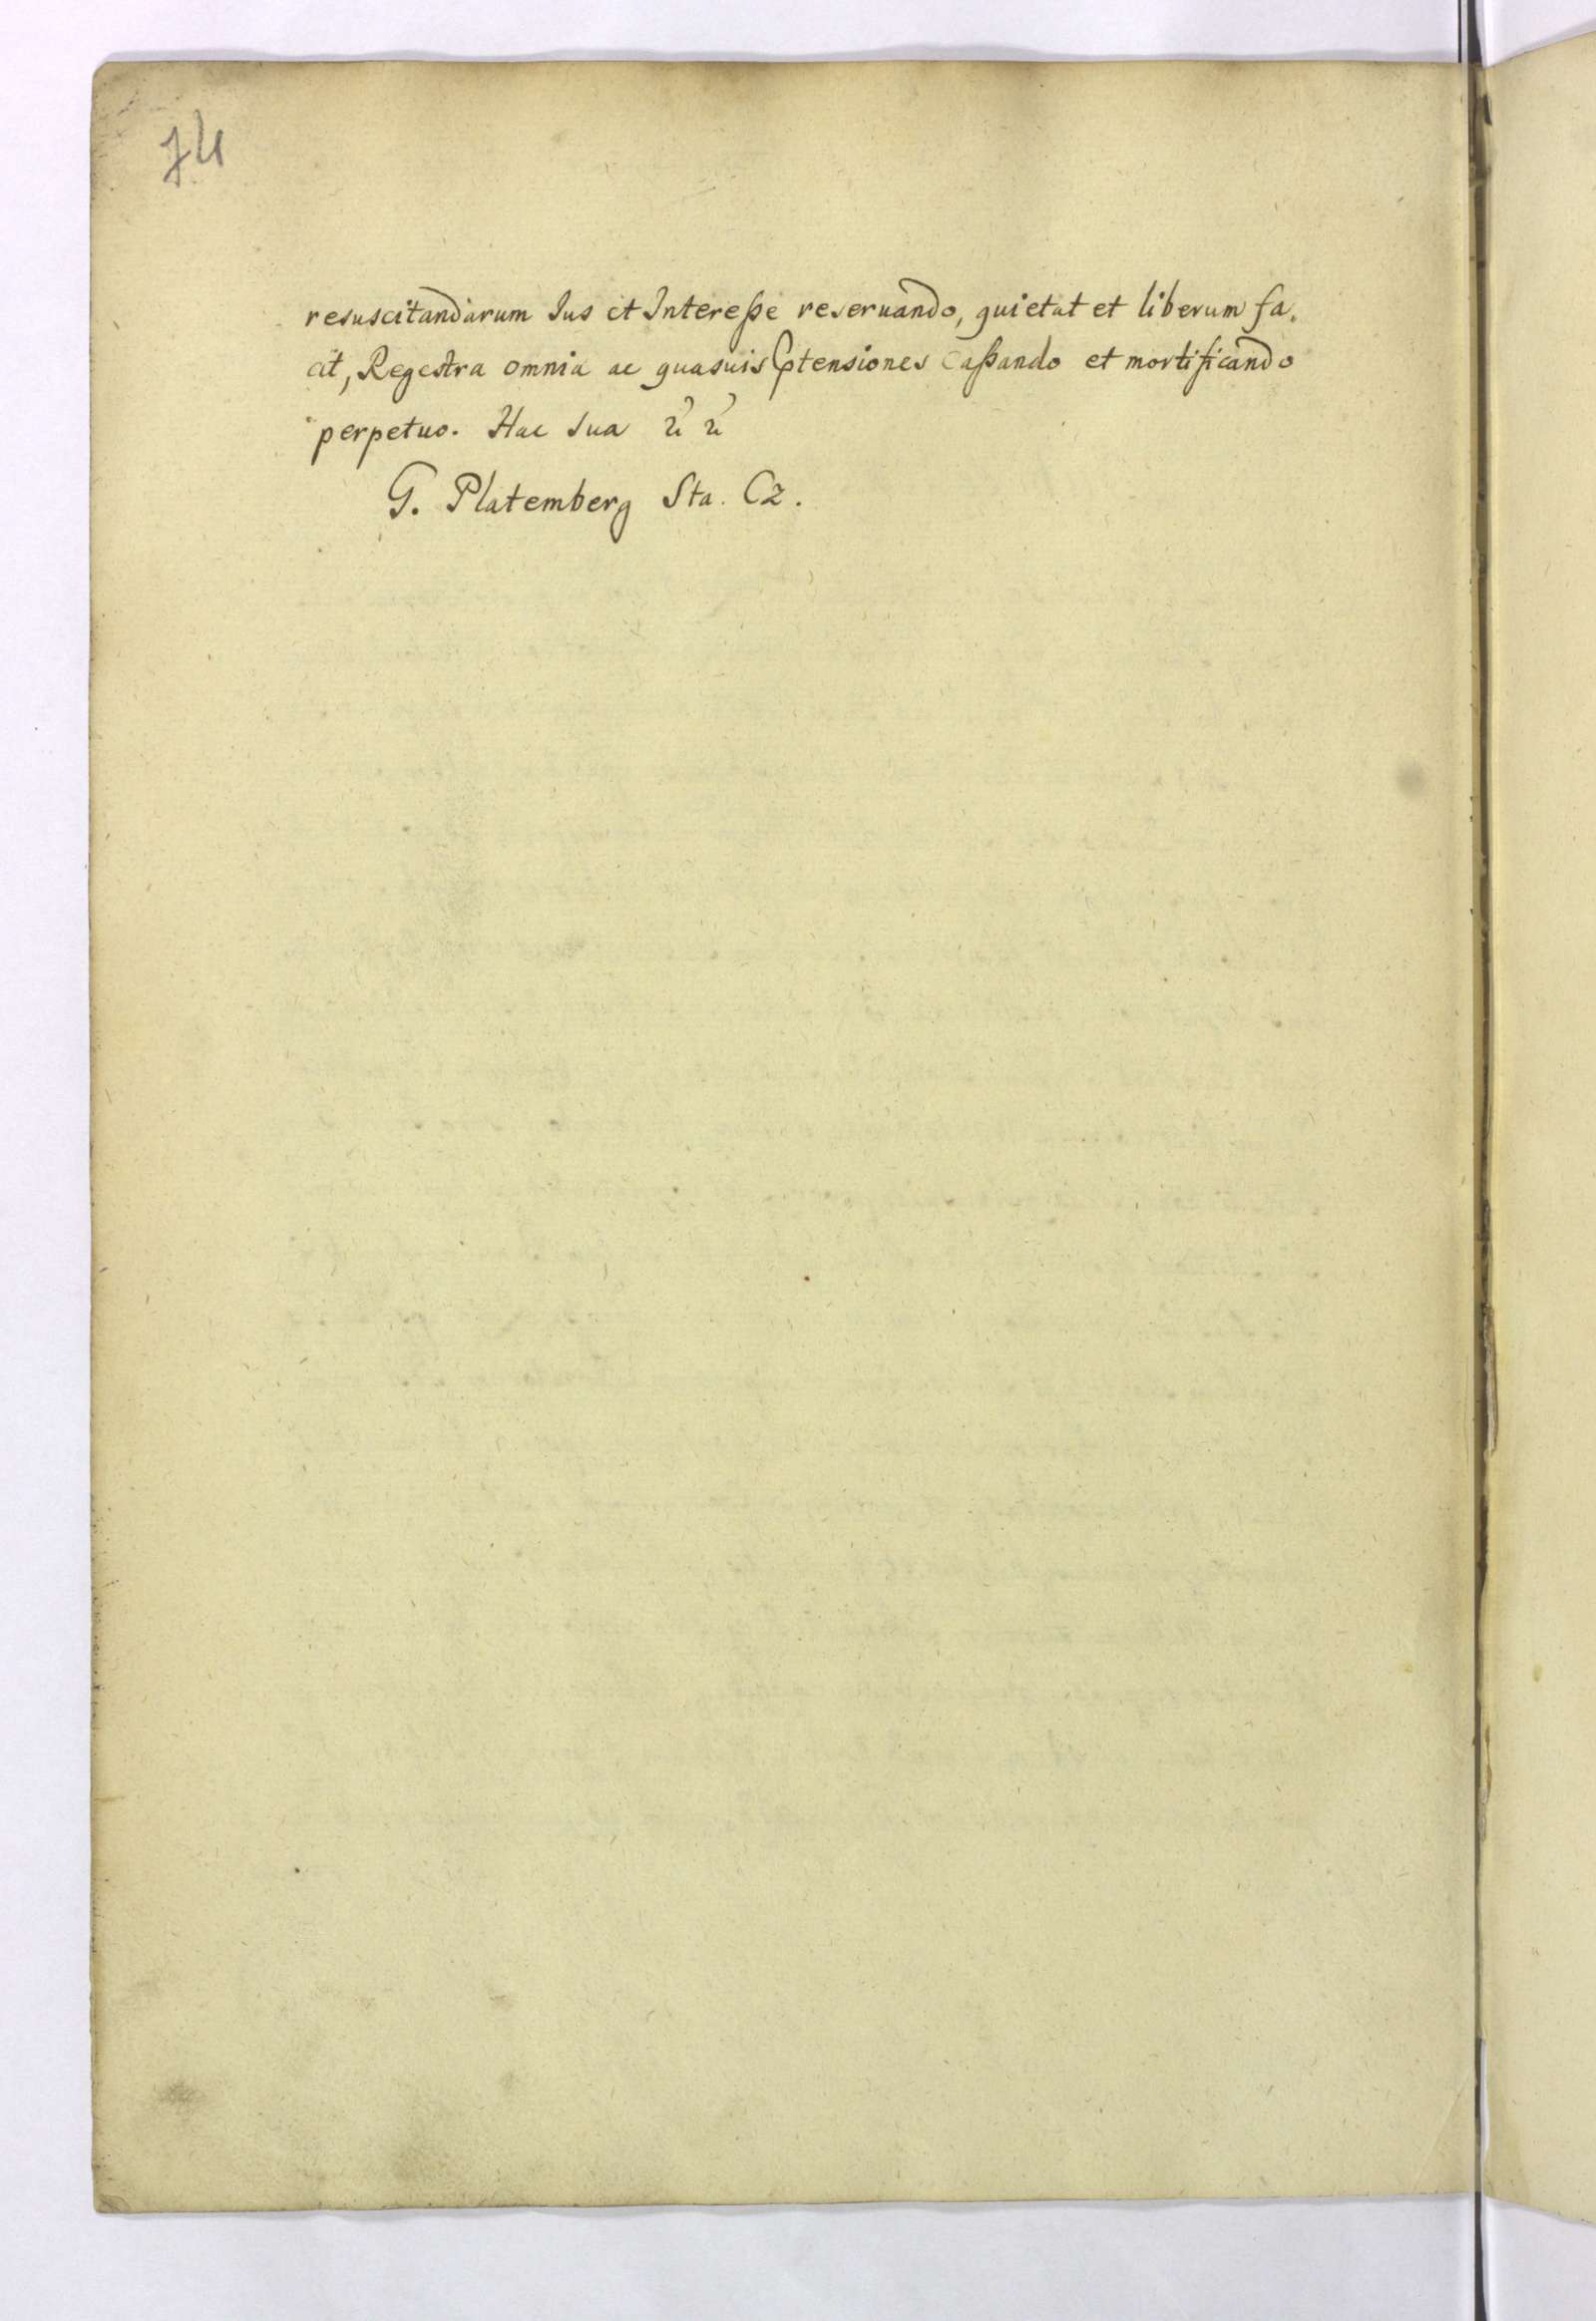 74
resuscitandarum Jus et Interesse reseruando, quietat et liberum fa.
cit, Regestra omnia ac quasuis Ptensiones Cassando et mortificando
perpetuo. Hac sua
G. Platemberg Sta. Cz.